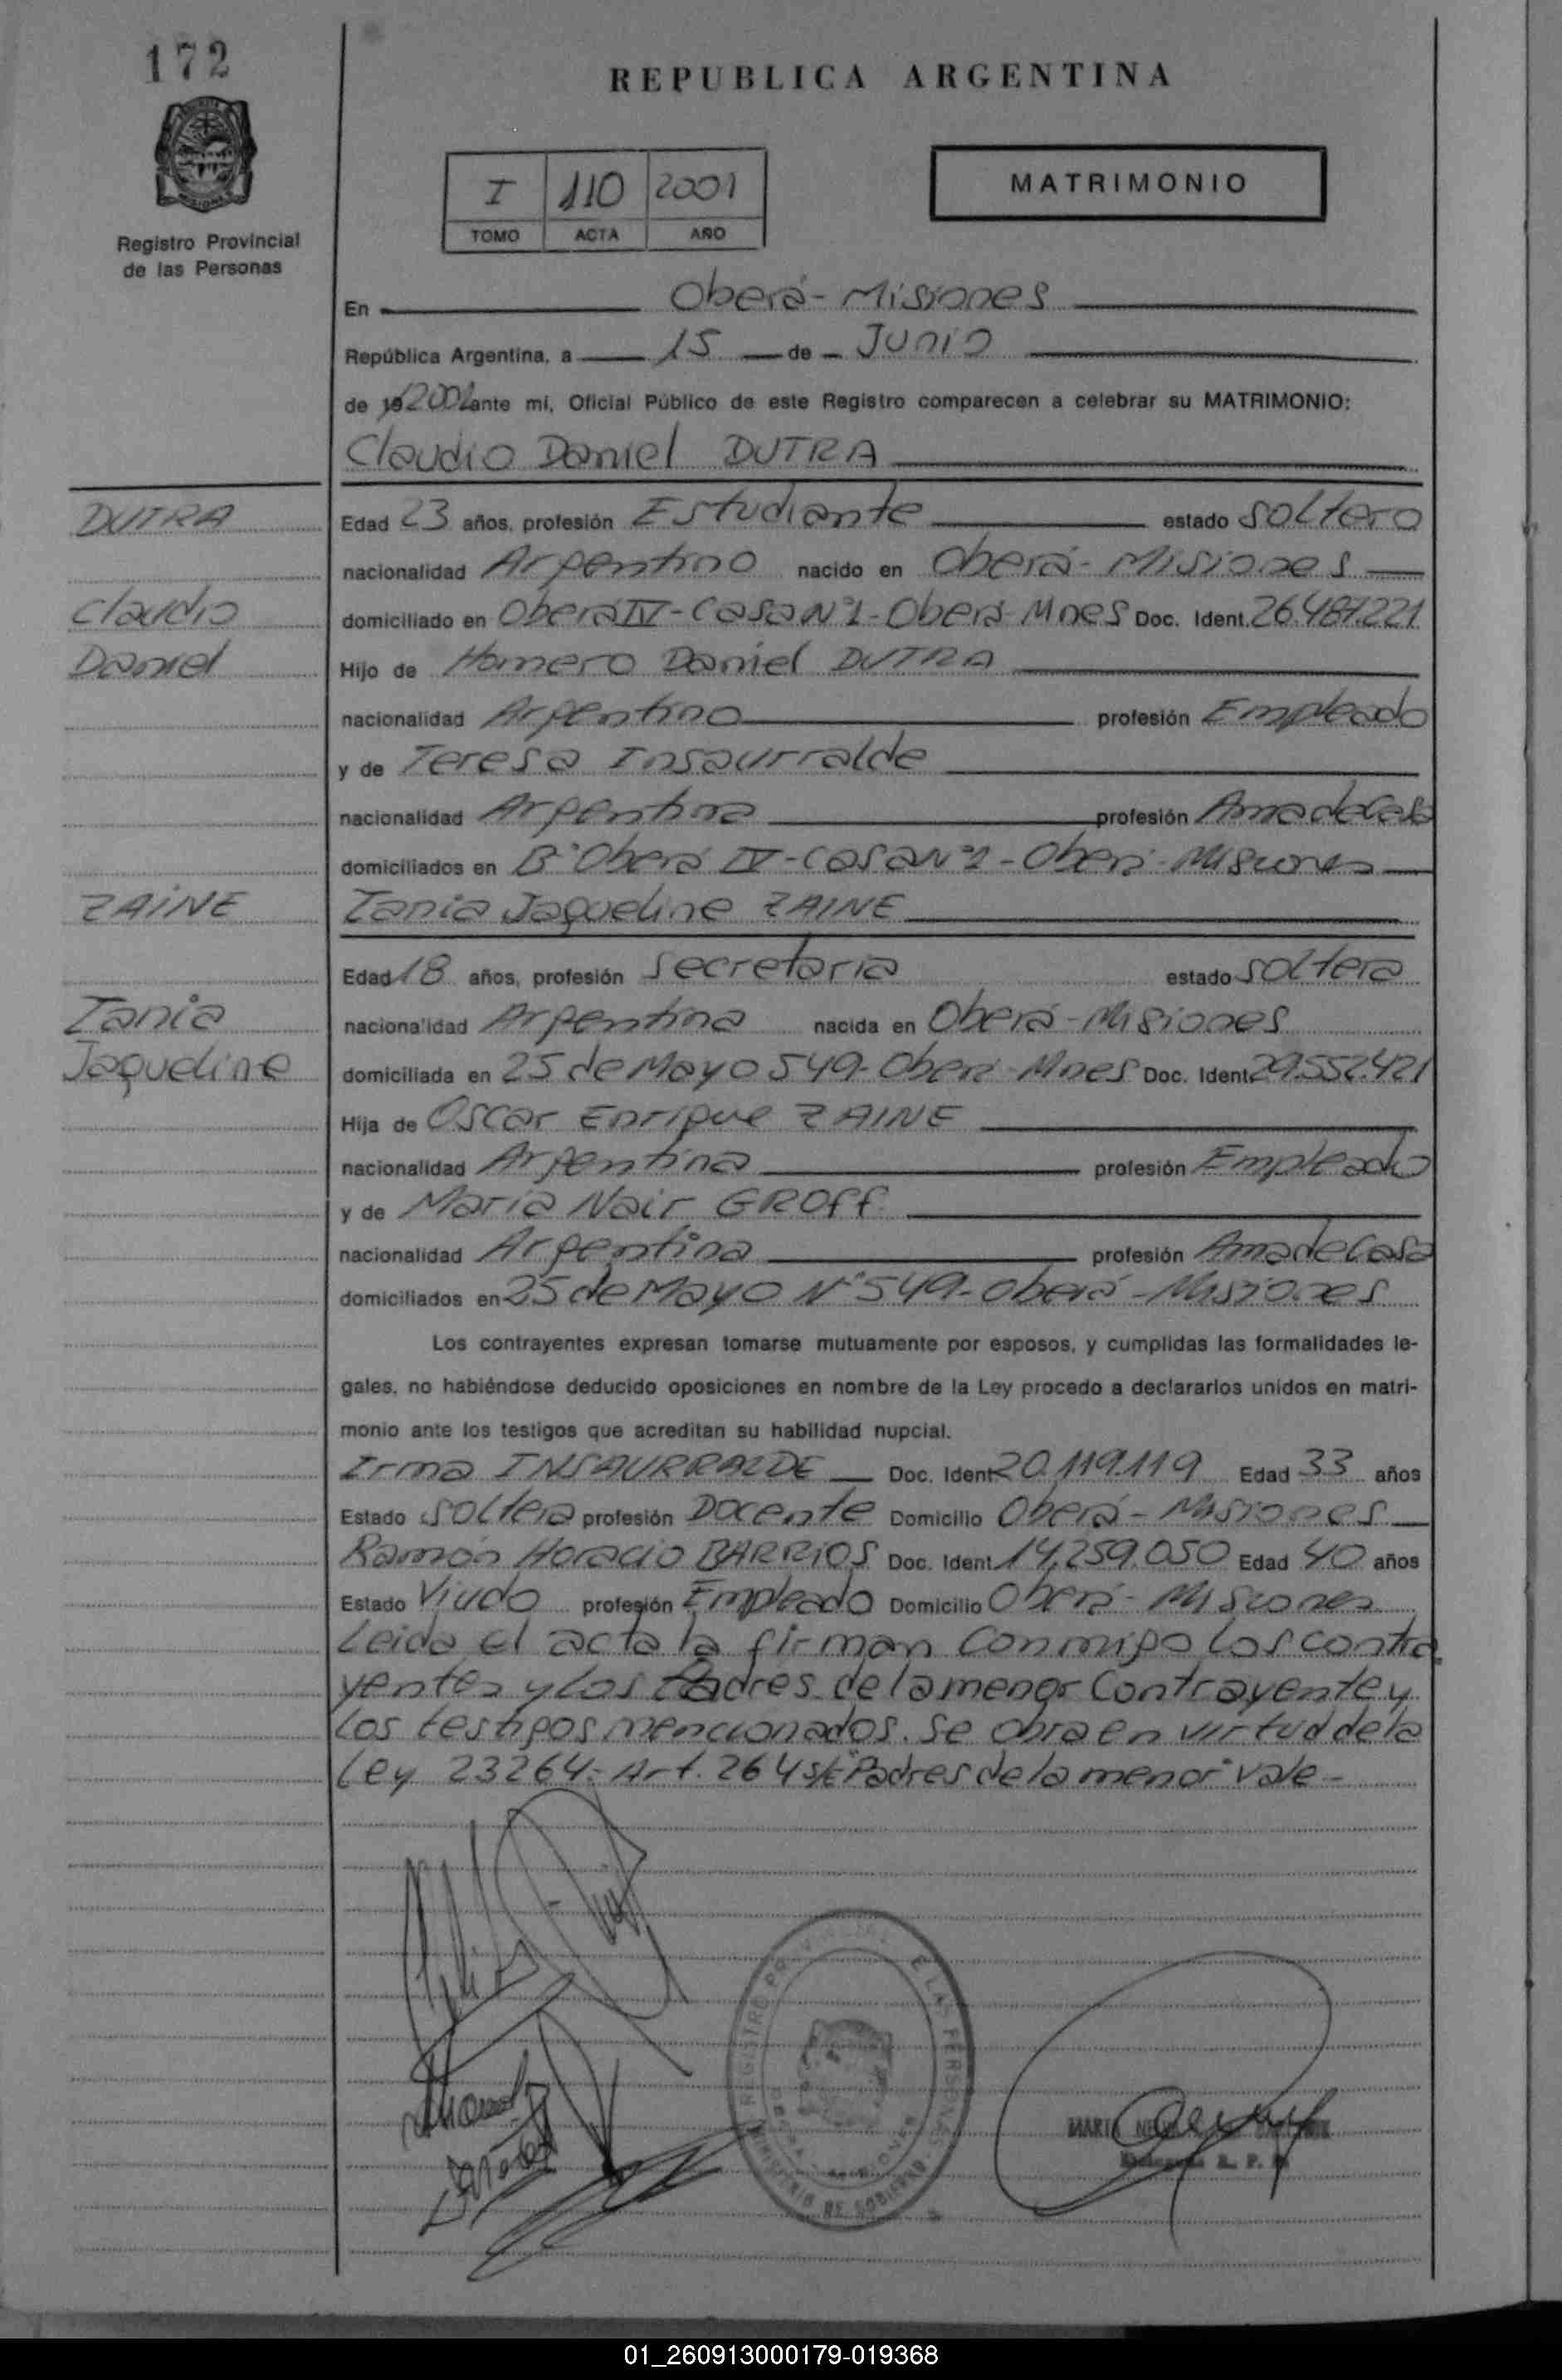 172
REPUBLICA ARGENTINA
I 110 2001
TOMO ACTA AÑO
MATRIMONIO
Registro Provincial
de las Personas
En Oberá - Misiones
República Argentina, a 15 de Junio
de 19 2001 ante mí, Oficial Público de este Registro comparecen a celebrar su MATRIMONIO:
Claudio Daniel DUTRA
DUTRA
Edad 23 años, profesión Estudiante estado soltero
nacionalidad Argentino nacido en Oberá - Misiones
Claudio
domiciliado en Oberá IV - Casa Nº1 - Oberá Mnes Doc. Ident. 26.487.221
Daniel
Hijo de Homero Daniel DUTRA
nacionalidad Argentino profesión Empleado
y de Teresa Insaurralde
nacionalidad Argentina profesión Ama de Casa
domiciliados en Bº Oberá IV - Casa Nº1 - Oberá - Misiones
ZAINE
Tania Jaqueline ZAINE
Edad 18 años, profesión secretaria estado soltera
Tania
nacionalidad Argentina nacida en Oberá - Misiones
Jaqueline
domiciliada en 25 de Mayo 549 - Oberá Mnes Doc. Ident. 29.552.421
Hija de Oscar Enrique ZAINE
nacionalidad Argentina profesión Empleado
y de Maria Nair GROFF
nacionalidad Argentina profesión Ama de Casa
domiciliados en 25 de Mayo Nº 549 - Oberá - Misiones
Los contrayentes expresan tomarse mutuamente por esposos, y cumplidas las formalidades le-
gales, no habiéndose deducido oposiciones en nombre de la Ley procedo a declararlos unidos en matri-
monio ante los testigos que acreditan su habilidad nupcial.
Irma INSAURRALDE Doc. Ident. 20.119.119 Edad 33 años
Estado soltera profesión Docente Domicilio Oberá - Misiones
Ramón Horacio BARRIOS Doc. Ident. 14.259.050 Edad 40 años
Estado Viudo profesión Empleado Domicilio Oberá - Misiones
Leida el acta la firman conmigo los contra
yentes y los Padres de la menor Contrayente y
los testigos mencionados. Se obra en virtud de la
Ley 23264 - Art. 264 s/E "Padres de la menor" vale -
REGISTRO PROVINCIAL DE LAS PERSONAS
MINISTERIO DE GOBIERNO
OBERA MISIONES
MARIA
01_260913000179-019368